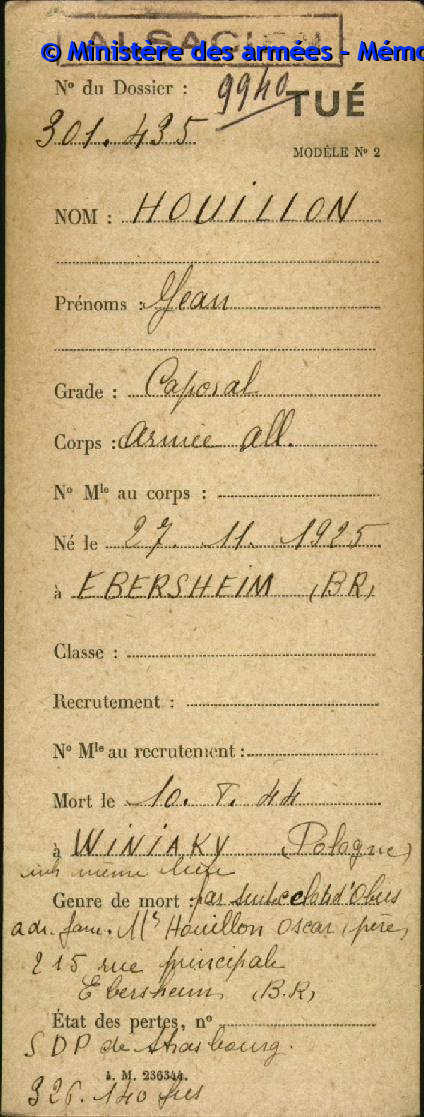 ALSACIEN
© Ministère des armées - Mémo
N° du Dossier :
9940
TUÉ
301.435
MODÈLE N° 2
NOM : HOUILLON
Prénoms : Jean
Grade : Caporal
Corps : armée all.
N° Mle au corps :
Né le 27. 11. 1925
à EBERSHEIM (BR)
Classe :
Recrutement :
N° Mle au recrutement :
Mort le 10. 8. 44
à WINIAKY (Pologne)
inh même lieu
Genre de mort : par suite eclats d'obus
adr. fam. Mr Houillon Oscar (père)
215 rue principale
Ebersheim (B.R)
État des pertes, n°
SDP de Strasbourg.
I. M. 236344.
326.140 fus